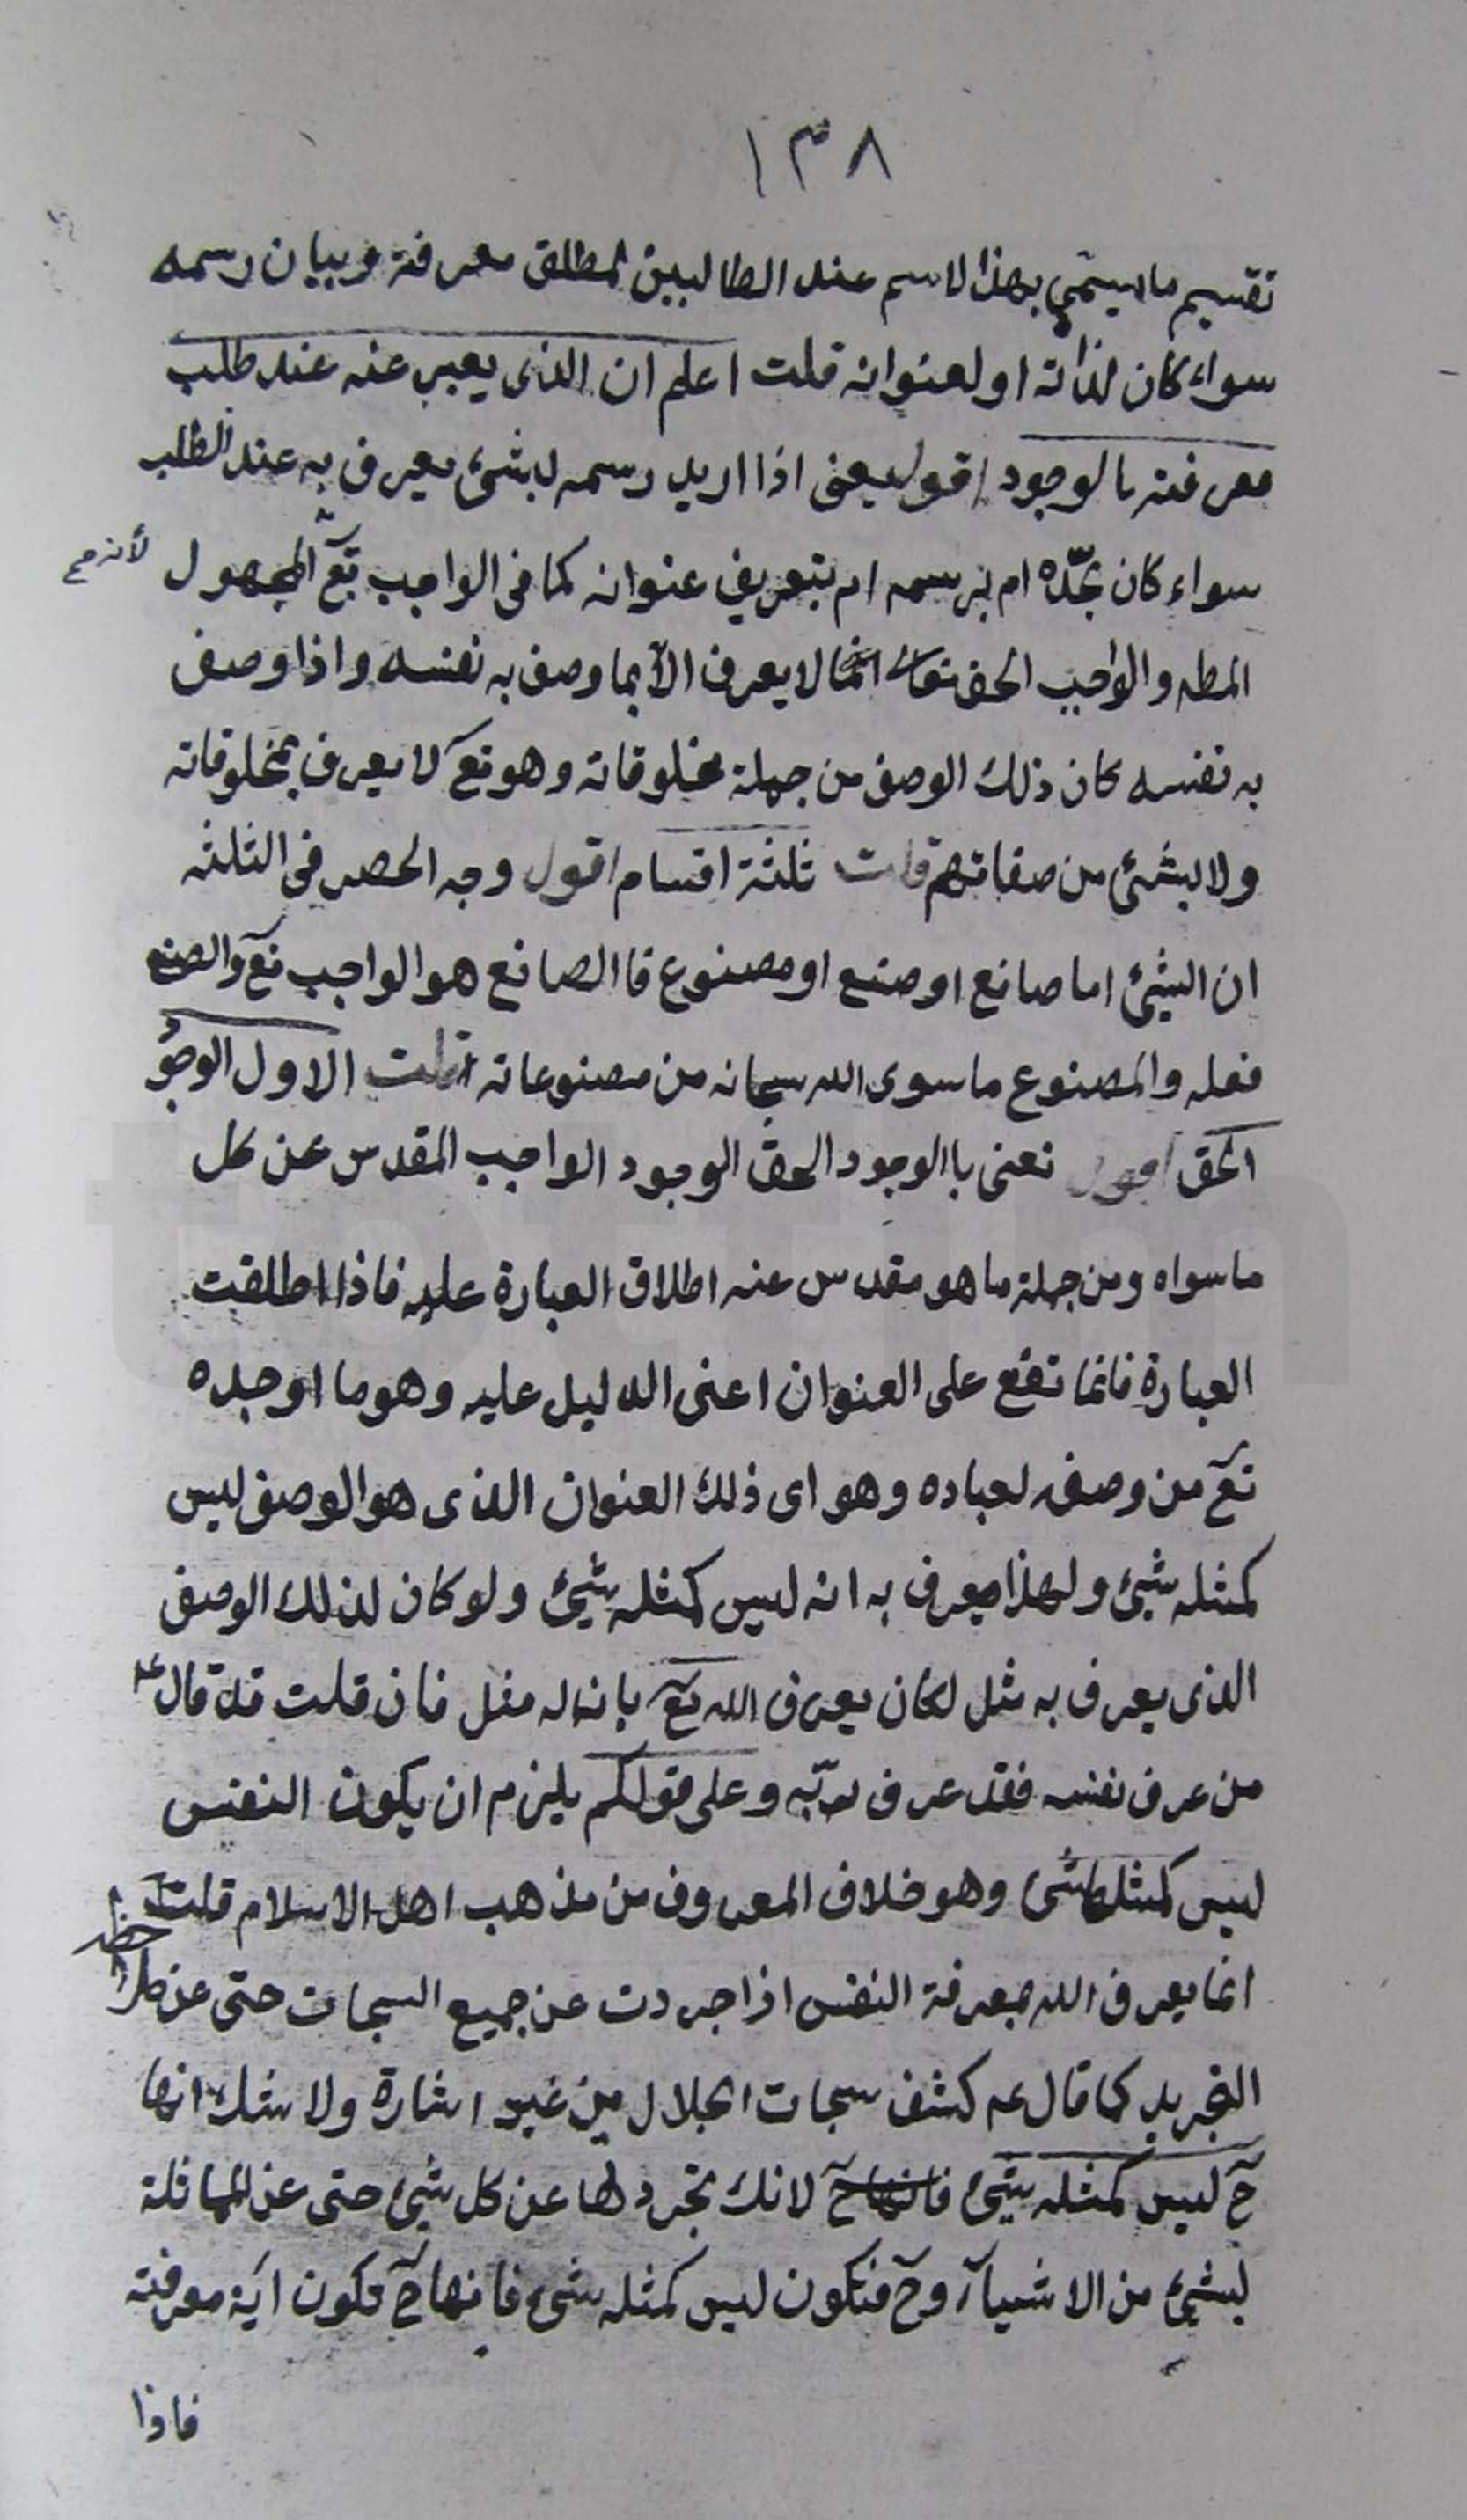 ١٣٨
تقسيم ما يسمى بهذا لاسم عند الطالبين لمطلق معرفة وبيان رسمه
سواء كان لذاته او لعنوانه قلت اعلم ان الذى يعبر عنه عند طلب
معرفته بالوجود اقول يعنى اذا اريد رسمه لبشئ يعرف به عند الطلب
سواء كان بحدّه ام برسمه ام بتعريف عنوانه كما فى الواجب تع المجهول لأنه مح
المطلق والواجب الحق تعالى انما لا يعرف الا بما وصف به نفسه واذا وصف
به نفسه كان ذلك الوصف من جملة مخلوقاته وهو تع لا يعرف بمخلوقاته
ولا بشئ من صفاتهم قلت ثلثة اقسام اقول وجه الحصر فى الثلثه
ان الشئ اما صانع او صنع او مصنوع فا الصانع هو الواجب تع والصنع
فعله والمصنوع ما سوى الله سبحانه من مصنوعاته قلت الاول الوجو
الحق اقول نعنى با الوجود الحق الوجود الواجب المقدس عن كل
ما سواه ومن جملة ما هو مقدس عنه اطلاق العبارة عليه فاذا اطلقت
العبارة فانما تقع على العنوان اعنى الدليل عليه وهو ما اوجده
تع من وصفه لعباده وهو اى ذلك العنوان الذى هو الوصف ليس
كمثله شئ ولهذا يعرف به انه ليس كمثله شئ ولو كان لذلك الوصف
الذى يعرف به مثل لكان يعرف الله تع بانه له مثل فان قلت قد قال عل
من عرف نفسه فقد عرف ربّه وعلى قولكم يلزم ان يكون النفس
ليس كمثلها شئ وهو خلاف المعروف من مذهب اهل الاسلام قلت
انما يعرف الله بمعرفة النفس اذا جردت عن جميع السبحات حتى عن
التجريد كما قال عم كشف سبحات الجلال من غير اشارة ولا شك انها
ح ليس كمثله شئ لانك تجردها عن كل شئ حتى عن المماثلة
لبشئ من الاشيآء وح فتكون ليس كمثله شئ فانها ح تكون اية معرفته
فاذا